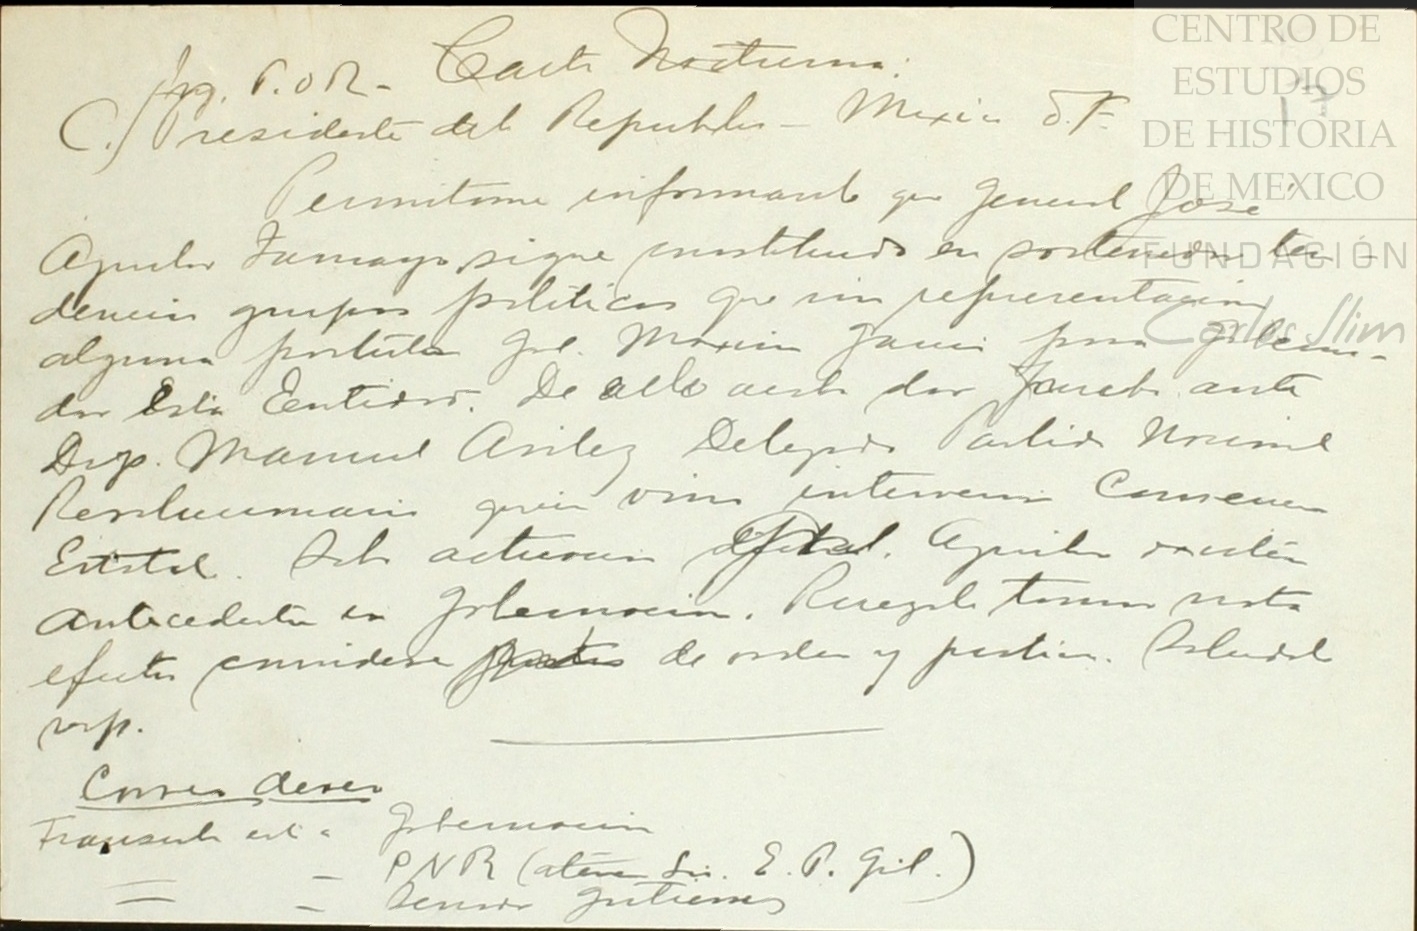 Carta Nocturna:
Ing. P.O R-
C. Presidente de la Republica - Mexico D.F.
Permitome informarle que General José
Aguilar Tamayo sigue constituido en sostenedor ten-
dencia grupos politicos que sin representación
alguna postula Gral. Macin para Goberna-
dor Esta Entidad. De ello acabo dar cuenta ante
Dip. Manuel Aviléz Delegado Partido Nacional
Revolucionario quien vino intervenir
Estatal. Sobre actuacion Gral. Aguilar existen
antecedentes en Gobernacion. Ruegole tomar nota
efectos considere justos de orden y justicia. Saludole
resp.
Correo aereo
Transcrito esto a Gobernacion
= - P N R (atención Lic. E. P. Gil.)
= - Senador Gutierrez
17
CENTRO DE
ESTUDIOS
DE HISTORIA
DE MÉXICO
FUNDACIÓN
Carlos Slim